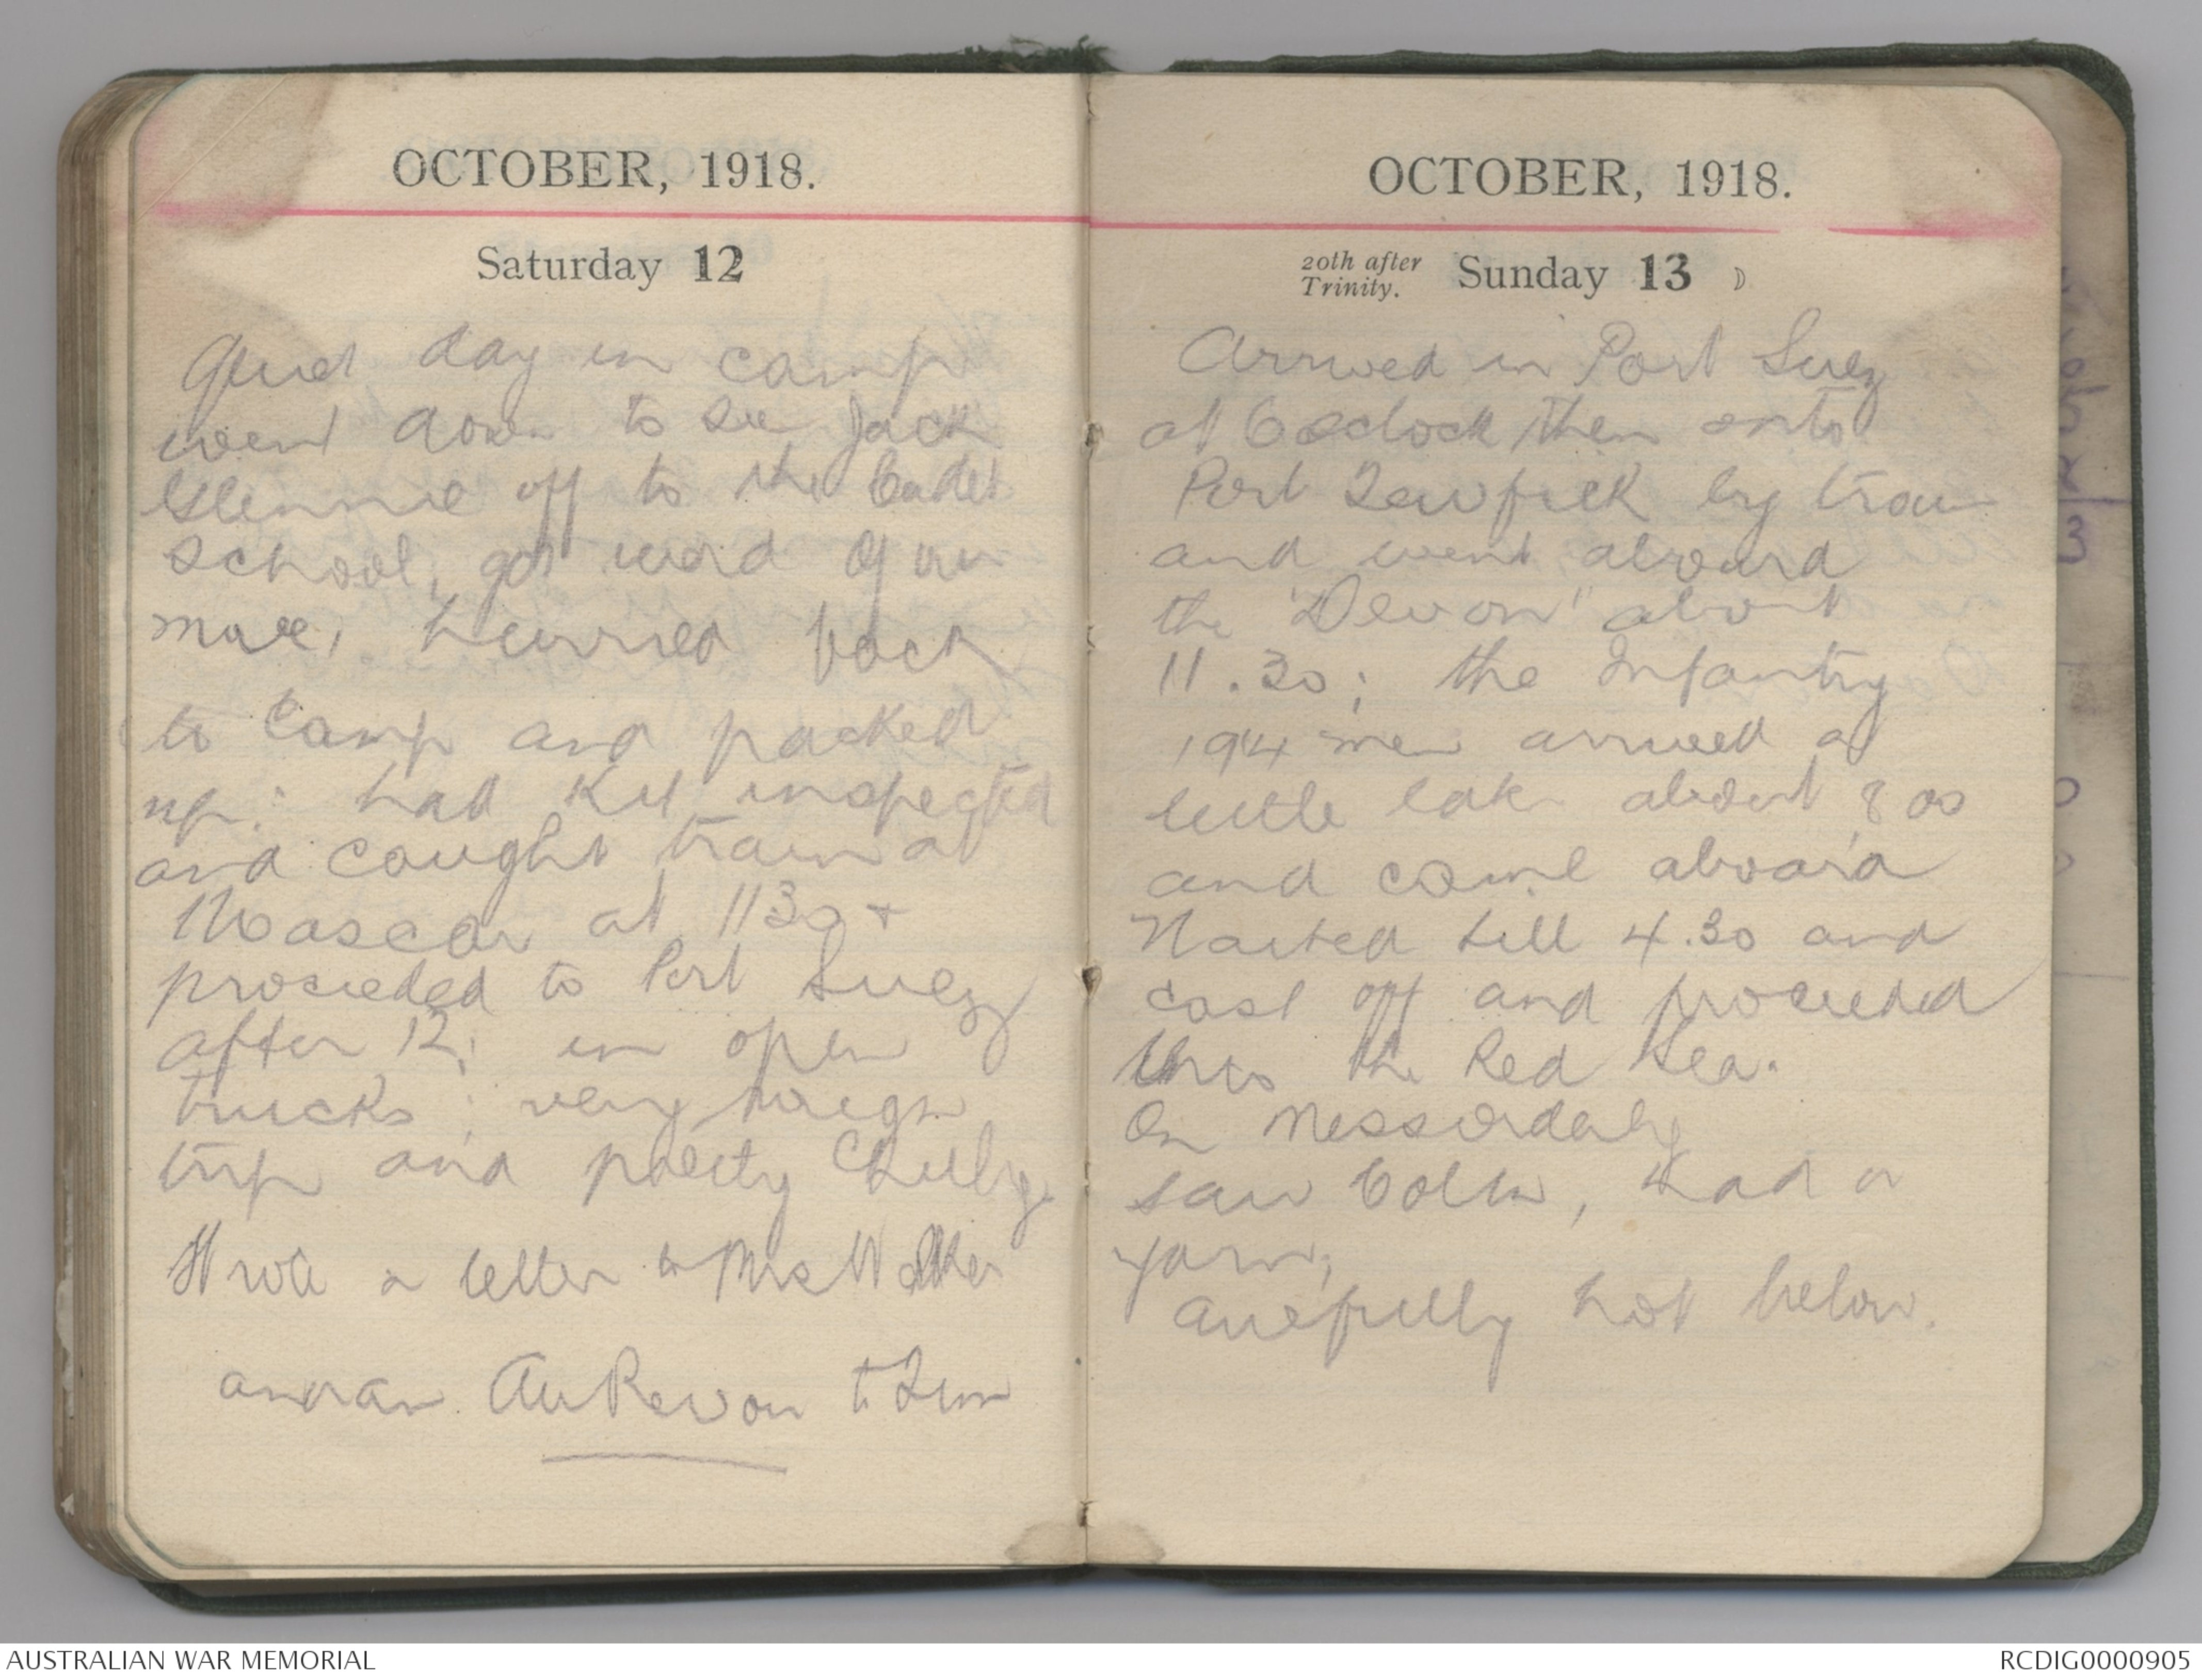 OCTOBER, 1918.
Saturday 12
Quiet day in camp
went down to see Jack
Glennie off to the Cadet
school, got word of our
move, hurried back
to camp and packed
up: had kit inspected
and caught train at
Moascar at 1130 +
proceeded to Port Suez
after 12; in open
trucks; very rough
trip and pretty chilly.
Wrote a letter to Mrs Walker
Au Revoir to
OCTOBER, 1918.
20th after Trinity. Sunday 13
Arrived in Port Suez
at 6 oclock then onto
Port Tewfick by train
and went aboard
the "Devon" about
11.30; the Infantry
194 men arrived a
little late about 8 00
and came aboard
Waited till 4.30 and
cast off and proceeded
thro the Red Sea.
On Mess Orderly
saw Colin, had a
yarn,
hot below.
3
AUSTRALIAN WAR MEMORIAL
RCDIG0000905